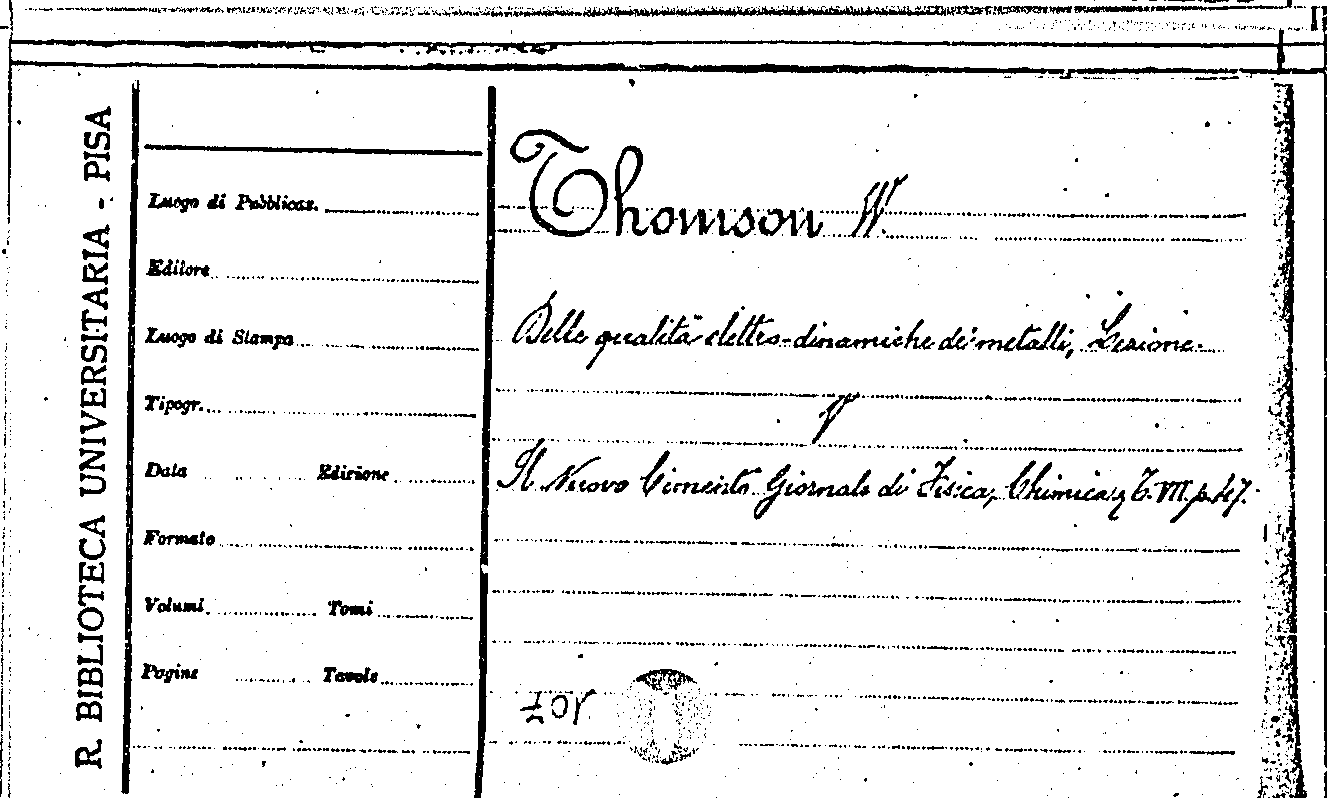 R. BIBLIOTECA UNIVERSITARIA - PISA
Luogo di Pubblicaz.
Editore
Luogo di Stampa
Tipogr.
Data Edizione
Formato
Volumi Tomi
Pagine Tavole
Thomson W.
Delle qualità elettro-dinamiche dei metalli, Lezione.
V
Il Nuovo Cimento Giornale di Fisica, Chimica, T. VII. p. 47.